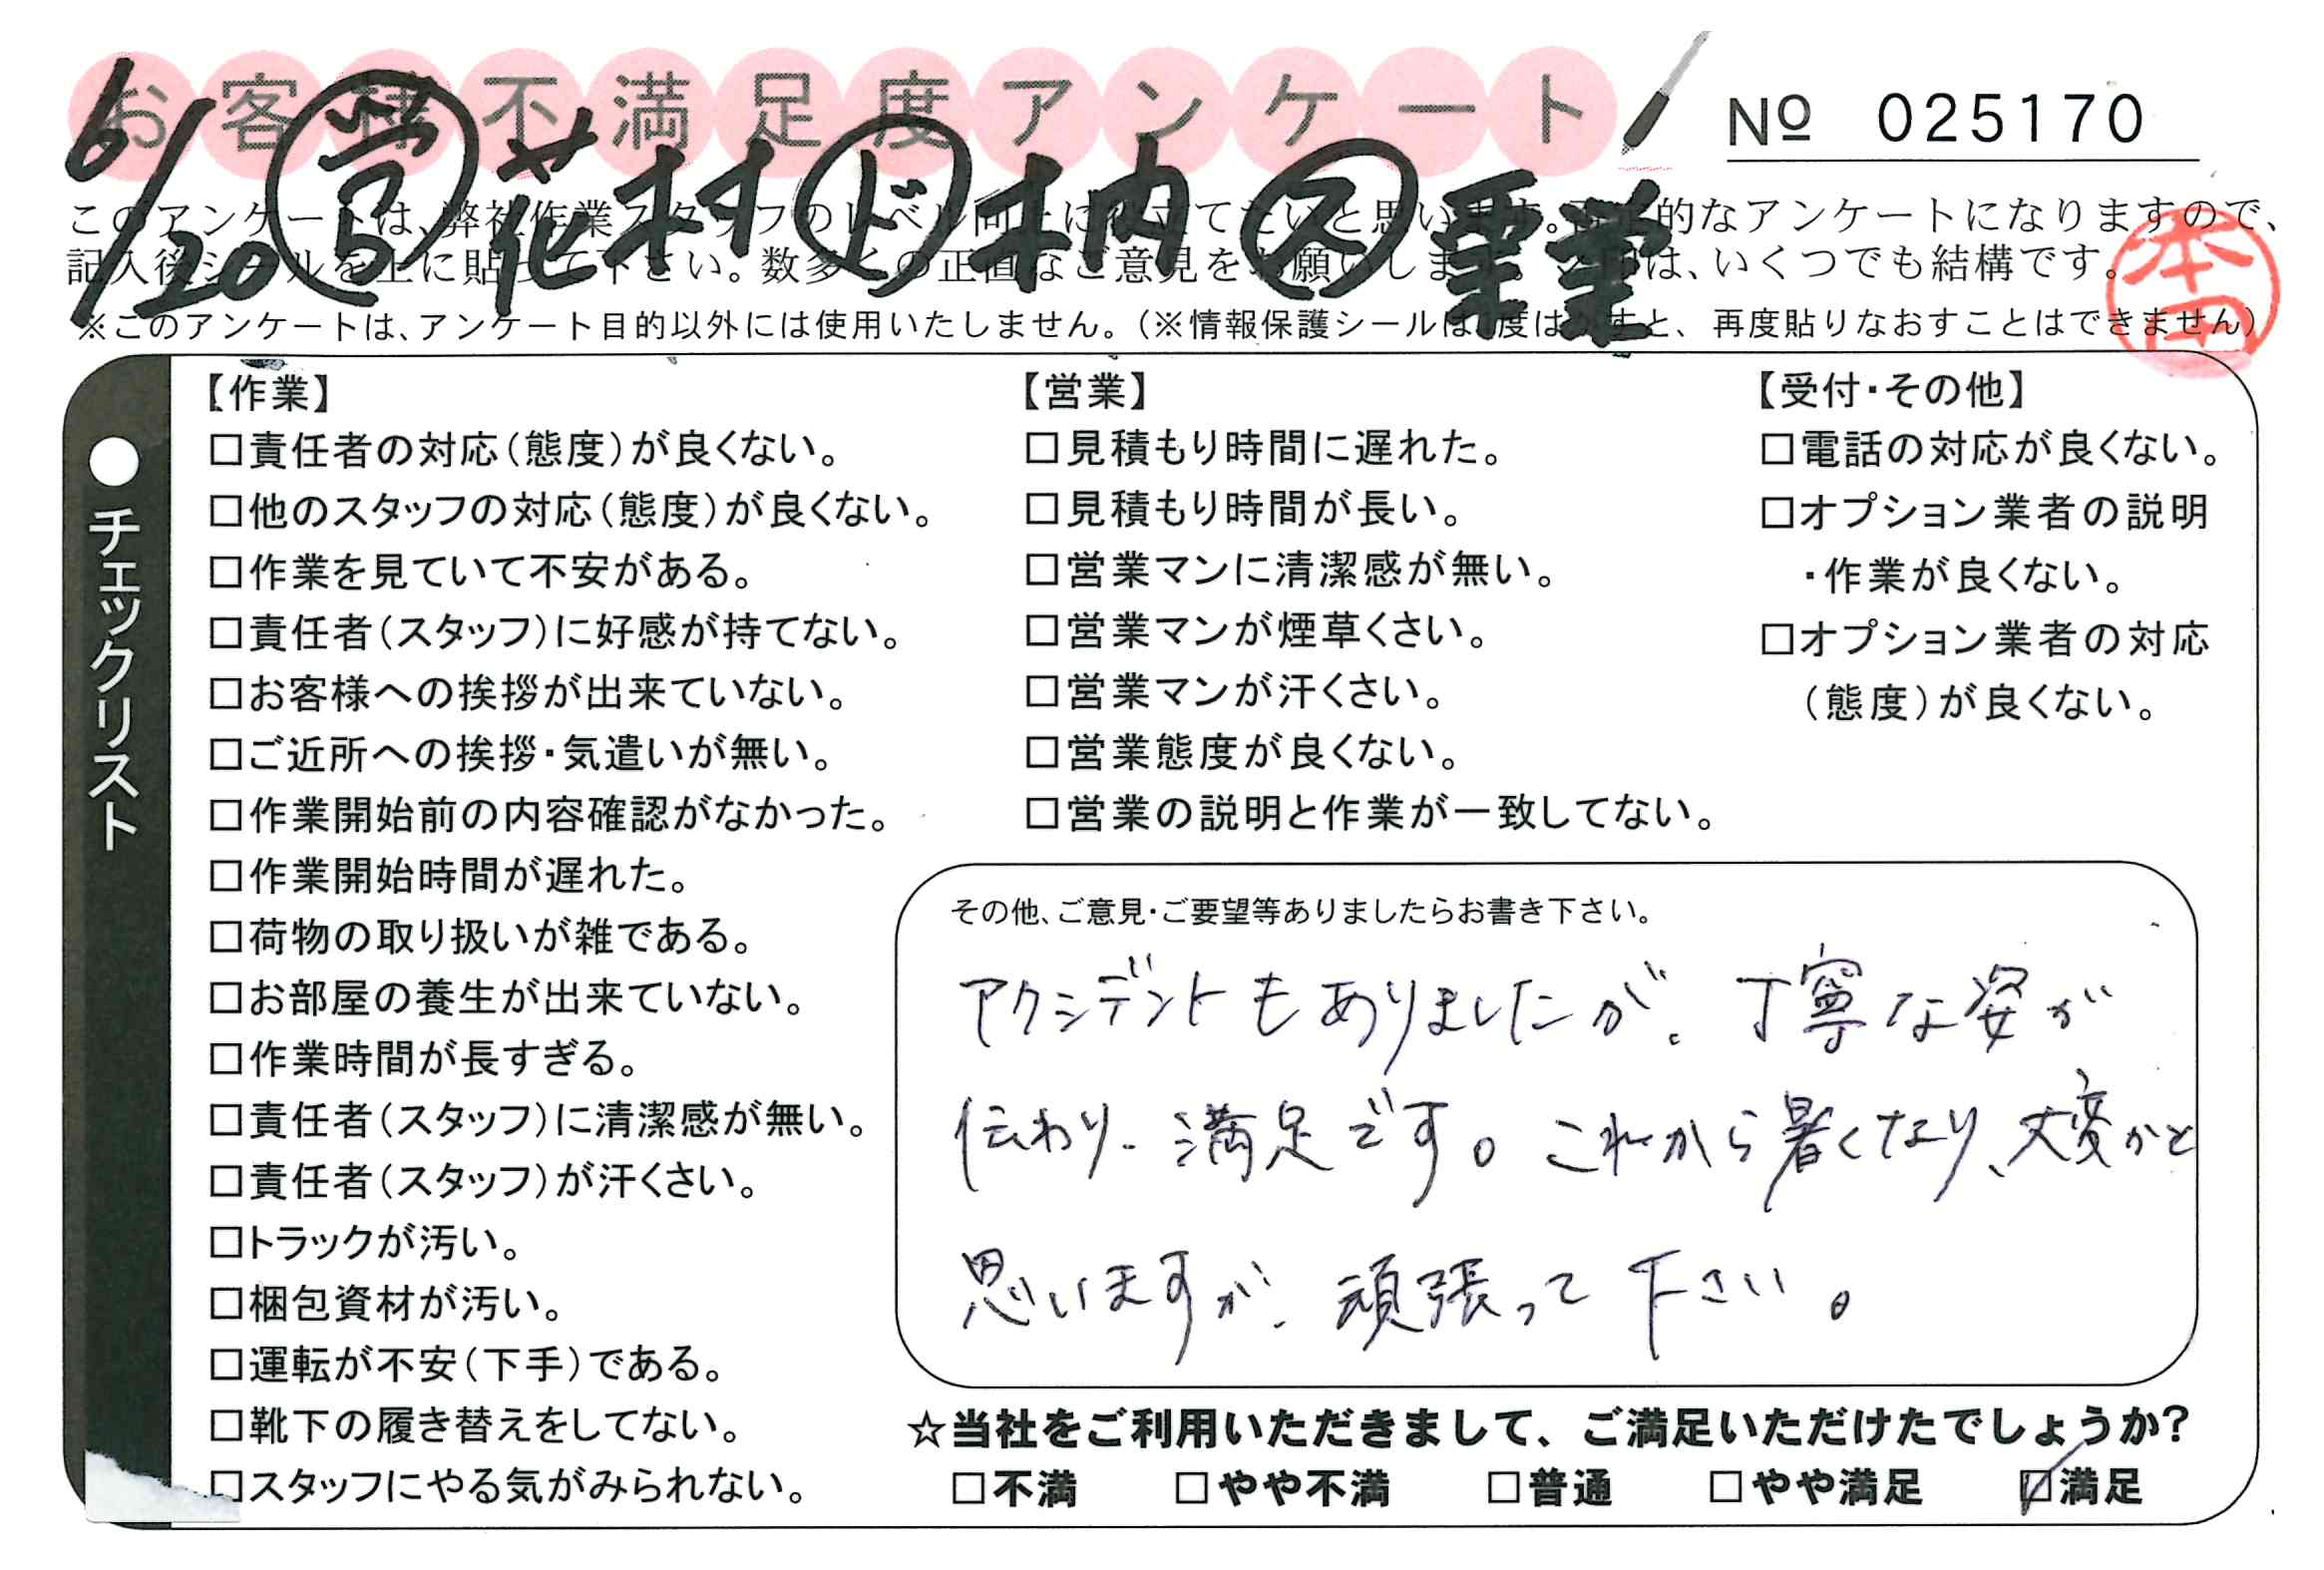 お客様不満足度アンケート
№ 025170
6/20 営 花村 ド 枘 ス 栗業
このアンケートは、弊社作業スタッフのレベル向上に役立てたいと思います。 的なアンケートになりますので、
記入後シールを上に貼って下さい。数多くの正直なご意見をお願いします。 は、いくつでも結構です。
※このアンケートは、アンケート目的以外には使用いたしません。(※情報保護シールは1度はがすと、再度貼りなおすことはできません)
本田
●チェックリスト
【作業】
□責任者の対応(態度)が良くない。
□他のスタッフの対応(態度)が良くない。
□作業を見ていて不安がある。
□責任者(スタッフ)に好感が持てない。
□お客様への挨拶が出来ていない。
□ご近所への挨拶・気遣いが無い。
□作業開始前の内容確認がなかった。
□作業開始時間が遅れた。
□荷物の取り扱いが雑である。
□お部屋の養生が出来ていない。
□作業時間が長すぎる。
□責任者(スタッフ)に清潔感が無い。
□責任者(スタッフ)が汗くさい。
□トラックが汚い。
□梱包資材が汚い。
□運転が不安(下手)である。
□靴下の履き替えをしてない。
□スタッフにやる気がみられない。
【営業】
□見積もり時間に遅れた。
□見積もり時間が長い。
□営業マンに清潔感が無い。
□営業マンが煙草くさい。
□営業マンが汗くさい。
□営業態度が良くない。
□営業の説明と作業が一致してない。
【受付・その他】
□電話の対応が良くない。
□オプション業者の説明
・作業が良くない。
□オプション業者の対応
(態度)が良くない。
その他、ご意見・ご要望等ありましたらお書き下さい。
アクシデントもありましたが、丁寧な姿が
伝わり、満足です。これから暑くなり、大変かと
思いますが、頑張って下さい。
☆当社をご利用いただきまして、ご満足いただけたでしょうか?
□不満 □やや不満 □普通 □やや満足 ☑満足